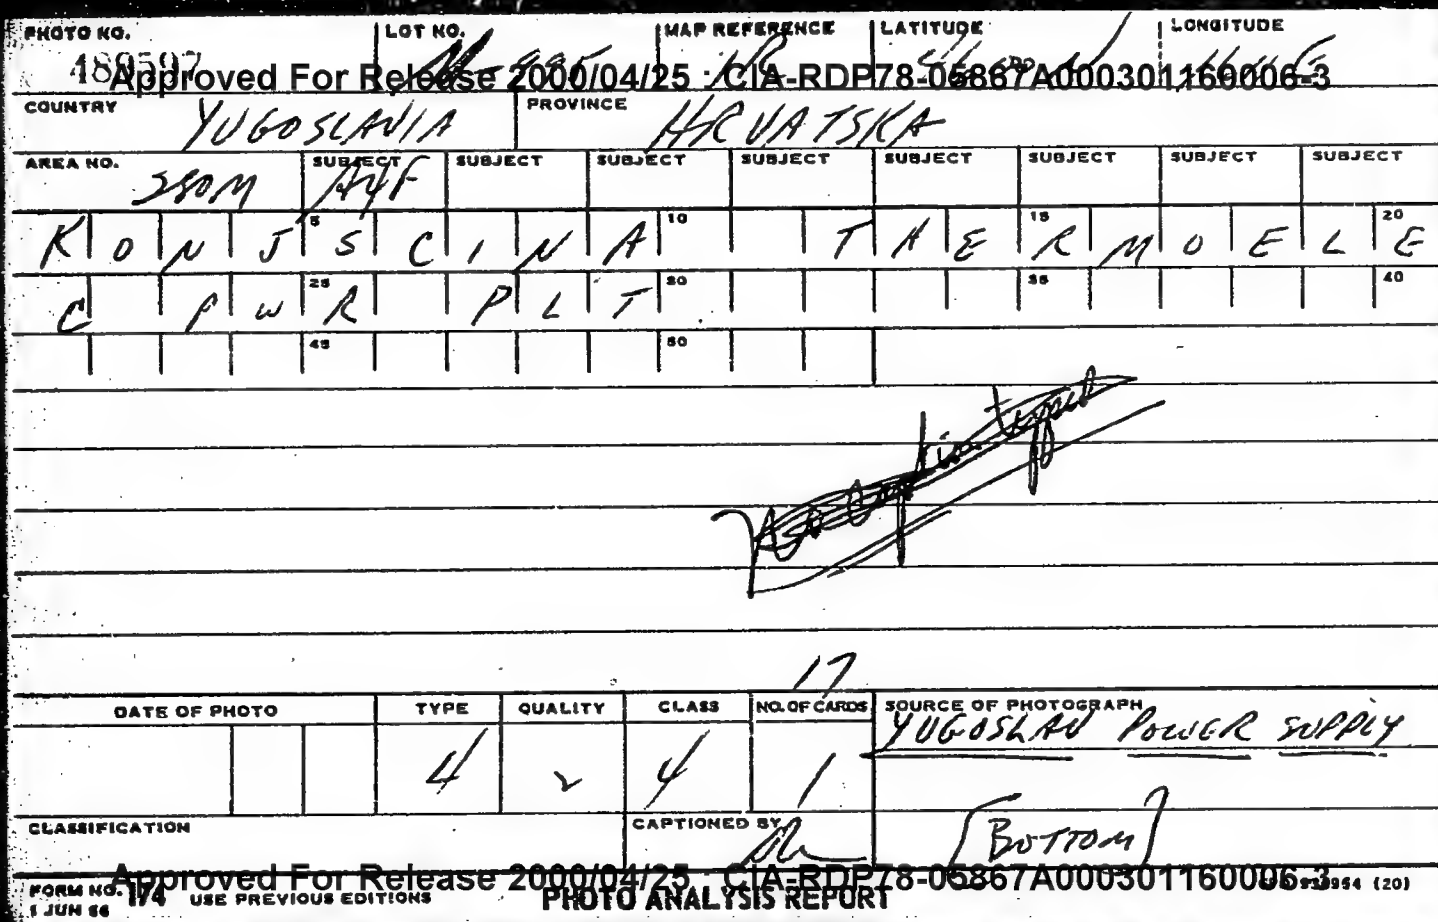 PHOTO NO. LOT NO. MAP REFERENCE LATITUDE LONGITUDE
Approved For Release 2000/04/25 : CIA-RDP78-05867A000301160006-3
COUNTRY YUGOSLAVIA PROVINCE HRVATSKA
AREA NO. SUBJECT SUBJECT SUBJECT SUBJECT SUBJECT SUBJECT SUBJECT SUBJECT
AYF
5 10 15 20
KONJSCINA THERMOELE
25 30 35 40
C PWR PLT
45 50
No Caption typed
17
DATE OF PHOTO TYPE QUALITY CLASS NO. OF CARDS SOURCE OF PHOTOGRAPH
YUGOSLAV POWER SUPPLY
4 2 4 1
CLASSIFICATION CAPTIONED BY [BOTTOM]
Approved For Release 2000/04/25 : CIA-RDP78-05867A000301160006-3
FORM NO. 174 USE PREVIOUS EDITIONS PHOTO ANALYSIS REPORT (20)
1 JUN 56